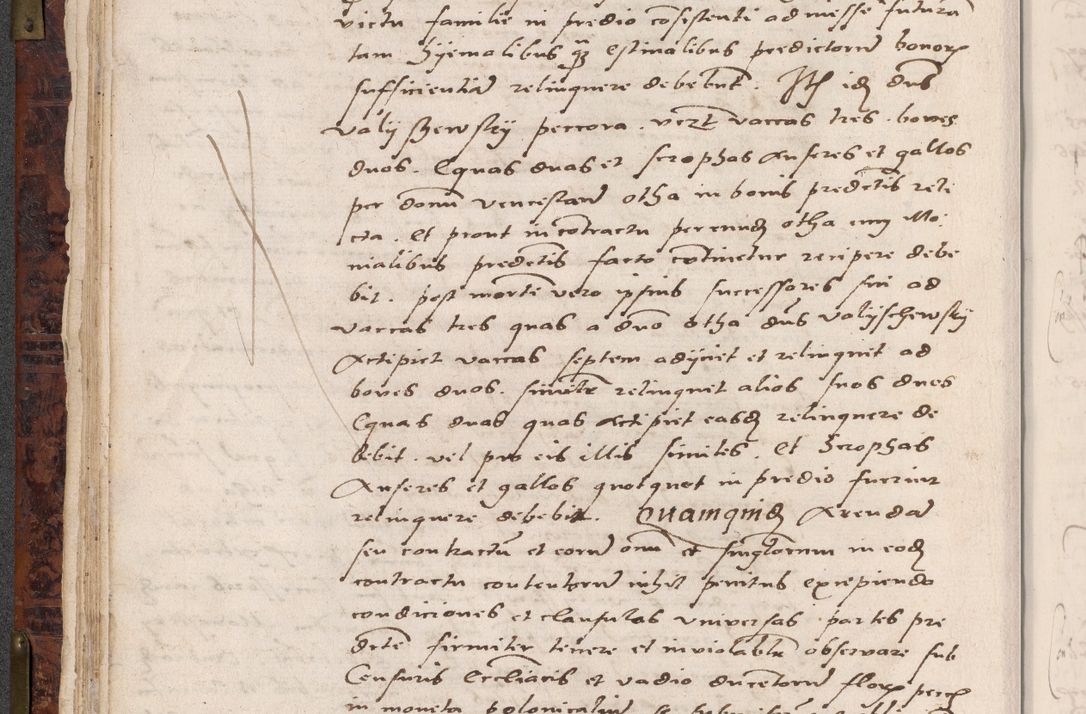 victu familie in predio cõsistenti ad messẽ futurã
tam hyemalibus q̃ꝫ estiualibus predictorũ bonorꝝ
sufficientiã relinquere debebunt. Itẽ idẽ dñs
Valijszewsky peccora. vczt vaccas tres. boves
duos. Equas duas et scrophas Anseres et gallos
per donũ venceslaũ otha in bonis predctis reli
cta. Et prout in cõtractu peremd̃ otha cum Mo
nialibus predctis facto cõtinetur recipere debe
bit. post mortẽ vero ipsius successores sui ad
vaccas tres quas a dño otha dñs Valijschewsky
Accipiet vaccas septem adijciet et relinquet ad
boves duos. similtr relinquet alios suos dues
Equas duas quas accipiet easdẽ relinquere de
bebit. vel pro eis illis similes. Et Scrophas
Anseres et gallos quotquot in predio fuerint
relinquere debebit. Quamquid̃ Arendã
seu contractũ et eorũ omũ et singlorum in eodẽ
contractu contentorũ nihil penitus excipiendo
condiciones et clausulas vniversas partes pre
dictẽ firmiter tenere et inviolabtr observare sub
Censuris Eccliacis et vadio ducẽtorũ florꝝ peccꝝ
in moneta polonicali